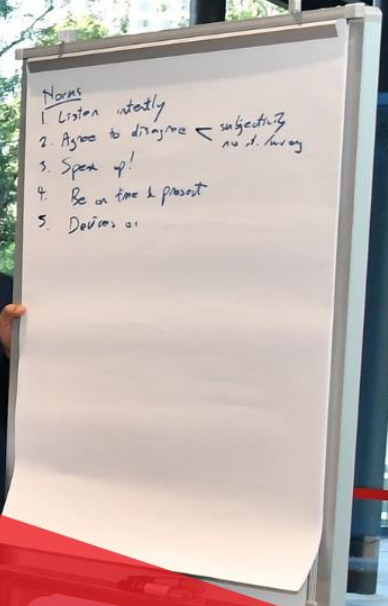 Norms
1 Listen intently
2. Agree to disagree < subjectivity
no rt. / wrong
3. Speak up!
4. Be on time & present
5. Devices on